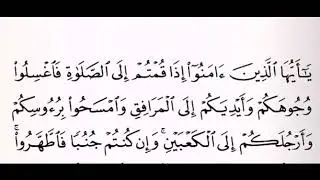 يَٰٓأَيُّهَا ٱلَّذِينَ ءَامَنُوٓا۟ إِذَا قُمْتُمْ إِلَى ٱلصَّلَوٰةِ فَٱغْسِلُوا۟
وُجُوهَكُمْ وَأَيْدِيَكُمْ إِلَى ٱلْمَرَافِقِ وَٱمْسَحُوا۟ بِرُءُوسِكُمْ
وَأَرْجُلَكُمْ إِلَى ٱلْكَعْبَيْنِ ۚ وَإِن كُنتُمْ جُنُبًا فَٱطَّهَّرُوا۟ ۚ